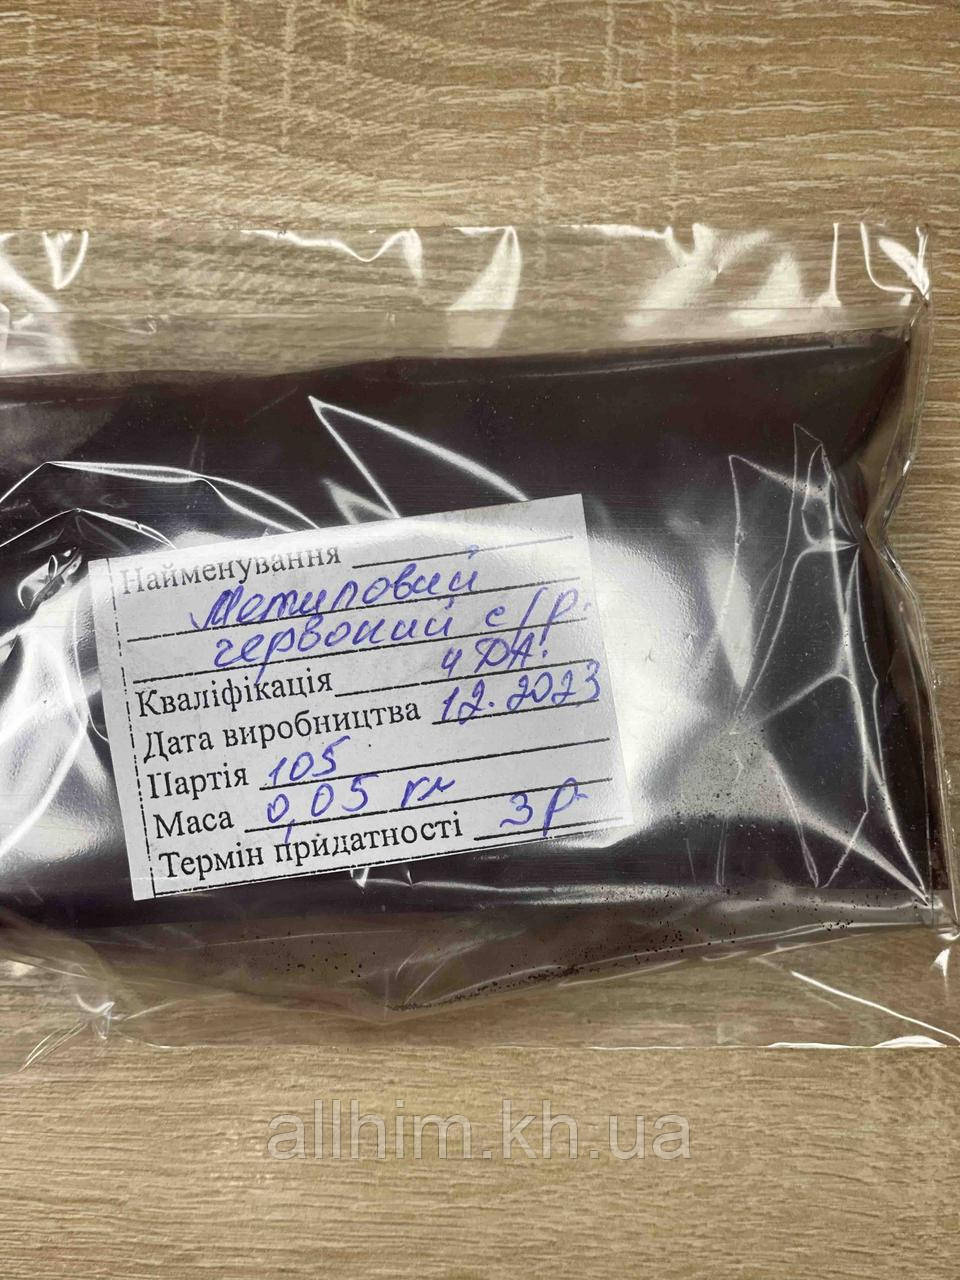 Найменування
Метиловий
червоний с/р.
Кваліфікація ЧДА.
Дата виробництва 12.2023
Партія 105
Маса 0,05 кг
Термін придатності 3 р.
allhim.kh.ua